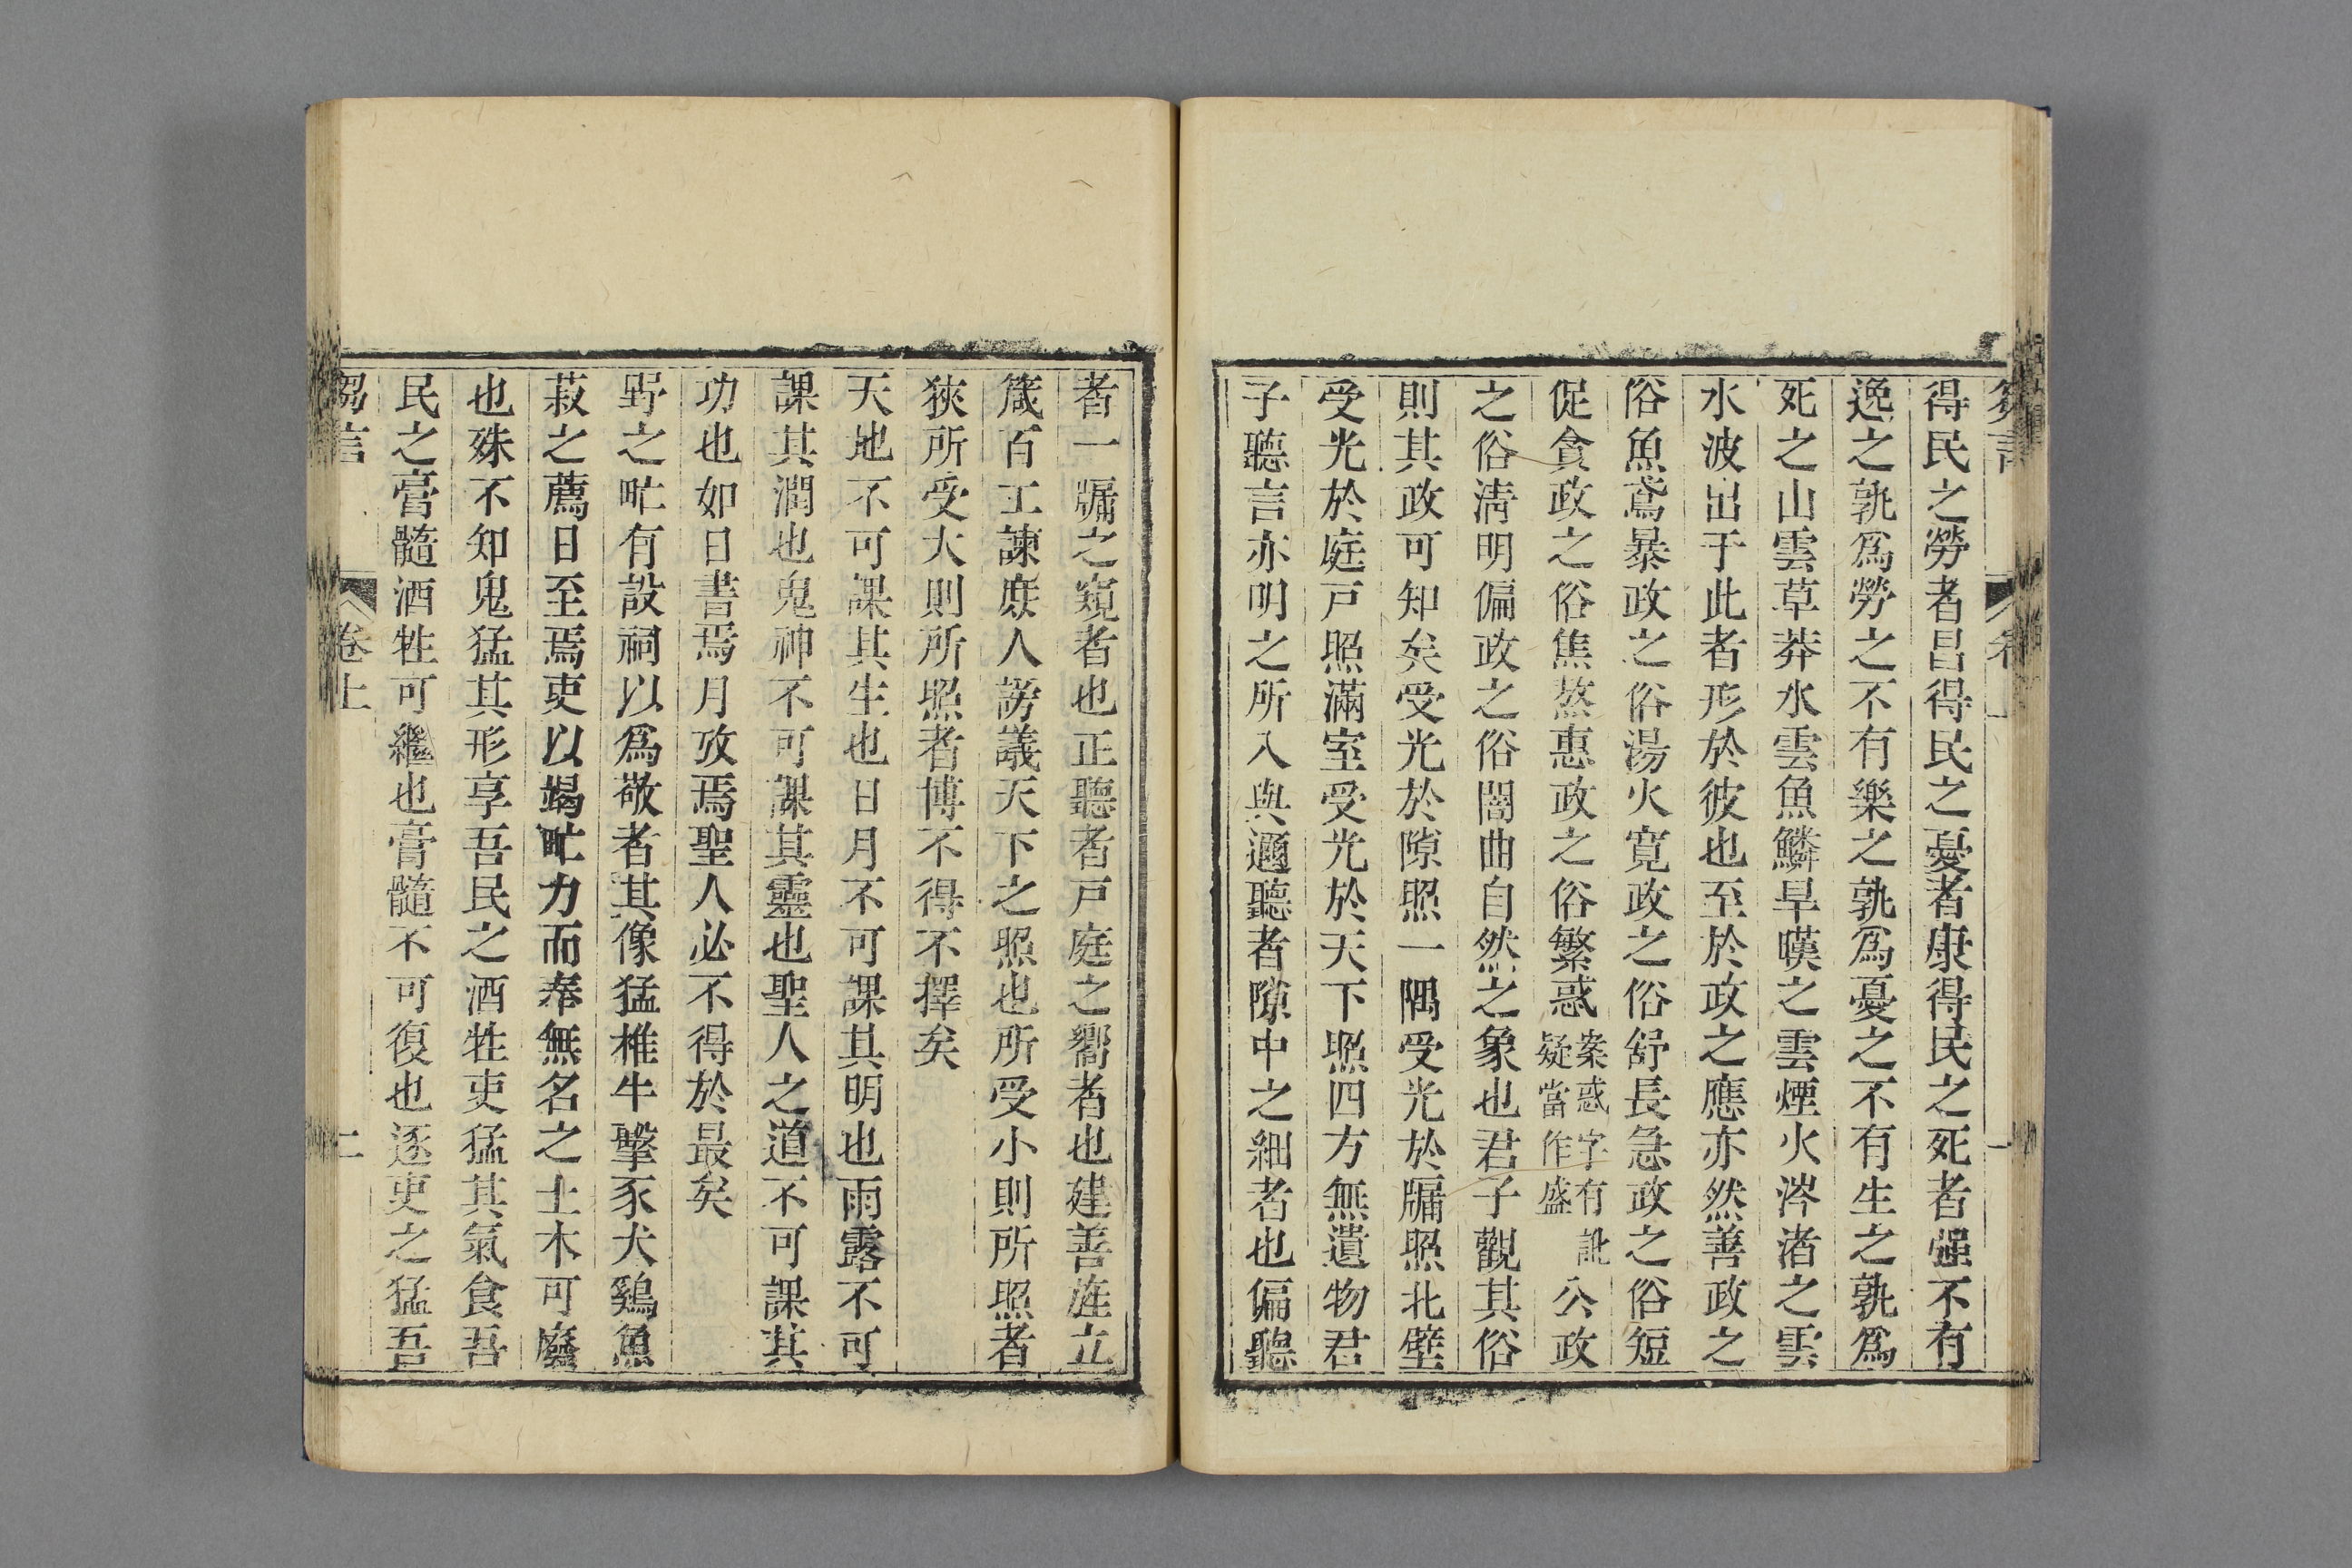 芻言
卷上
一
得民之勞者昌得民之憂者康得民之死者强不有
逸之孰爲勞之不有樂之孰爲憂之不有生之孰爲
死之山雲草莽水雲魚鱗旱暵之雲煙火涔渚之雲
水波出于此者形於彼也至於政之應亦然善政之
俗魚鳶暴政之俗湯火寬政之俗舒長急政之俗短
促貪政之俗焦熬惠政之俗繁惑案惑字有訛疑當作盛公政
之俗淸明偏政之俗闇曲自然之象也君子觀其俗
則其政可知矣受光於隙照一隅受光於牖照北壁
受光於庭戸照滿室受光於天下照四方無遺物君
子聽言亦明之所入與邇聽者隙中之細者也偏聽
者一牖之窺者也正聽者戸庭之嚮者也建善旌立
箴百工諫庶人謗議天下之照也所受小則所照者
狹所受大則所照者博不得不擇矣
天地不可課其生也日月不可課其明也雨露不可
課其潤也鬼神不可課其靈也聖人之道不可課其
功也如日書焉月攷焉聖人必不得於最矣
野之甿有設祠以爲敬者其像猛椎牛擊豕犬鷄魚
菽之薦日至焉吏以竭甿力而奉無名之土木可廢
也殊不知鬼猛其形享吾民之酒牲吏猛其氣食吾
民之膏髓酒牲可繼也膏髓不可復也逐吏之猛吾
芻言
卷上
二